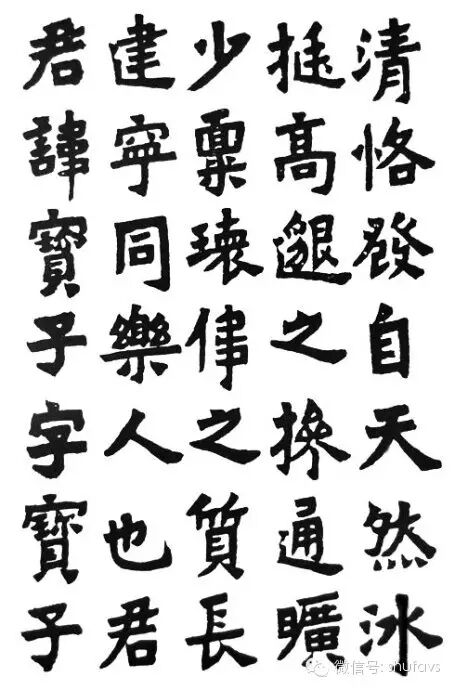 君諱寶子字寶子
建寧同樂人也君
少稟瓌偉之質長
挺高邈之操通曠
清恪發自天然冰
微信号: shufavs